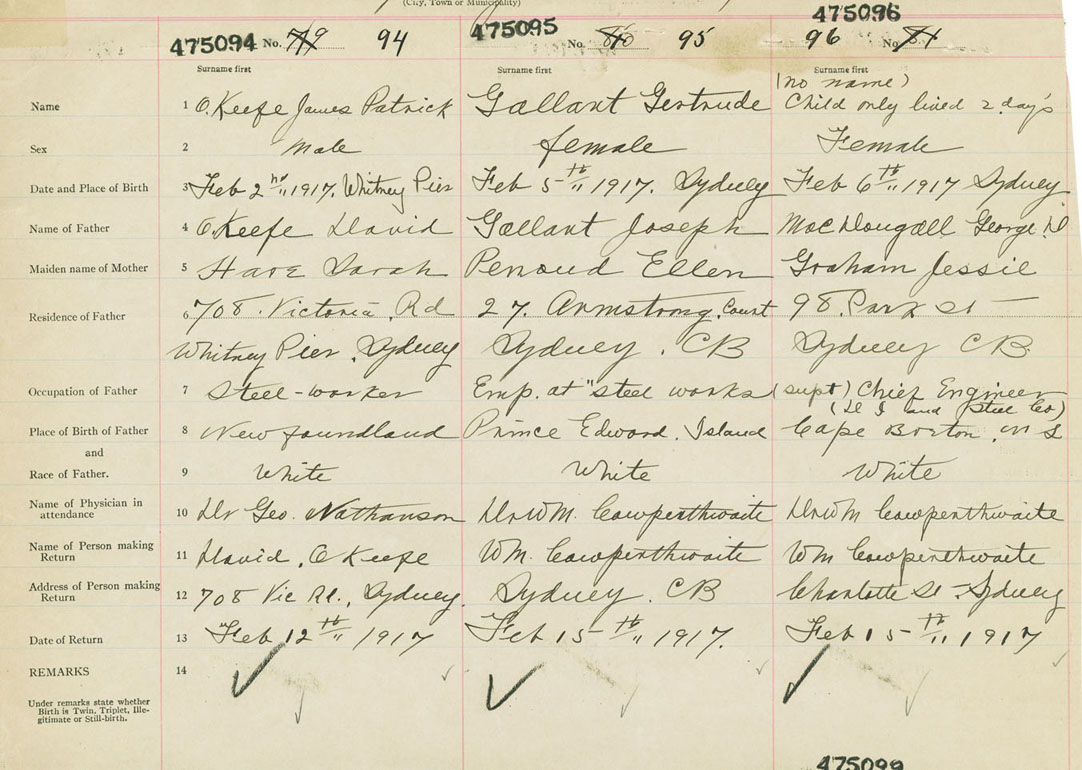 (City, Town or Municipality)
475094 No. 79 94
475095 No. 80 95
475096 96 No. 81
Surname first Surname first Surname first
Name 1 O'Keefe James Patrick Gallant Gertrude (no name) Child only lived 2 day's
Sex 2 Male female Female
Date and Place of Birth 3 Feb 2nd 1917. Whitney Pier Feb 5th 1917. Sydney Feb 6th 1917 Sydney
Name of Father 4 O'Keefe David Gallant Joseph MacDougall George D
Maiden name of Mother 5 Sarah Ellen Graham Jessie
Residence of Father 6 708. Victoria. Rd 27. Armstrong. Court 98. Park St
Whitney Pier. Sydney Sydney. CB Sydney CB.
Occupation of Father 7 Steel-worker Emp. at "steel works (supt) Chief Engineer
(D I and Steel Co)
Place of Birth of Father 8 Newfoundland Prince Edward. Island Cape Breton. N S
and
Race of Father. 9 White White White
Name of Physician in
attendance 10 Dr Geo. Nathanson Dr WM. Cowperthwaite Dr WM Cowperthwaite
Name of Person making
Return 11 David. O'Keefe WM. Cowperthwaite WM Cowperthwaite
Address of Person making
Return 12 708 Vic Rd., Sydney. Sydney. CB Charlotte St - Sydney
Date of Return 13 Feb 12th 1917 Feb 15th 1917. Feb 15th 1917
REMARKS 14
Under remarks state whether
Birth is Twin, Triplet, Ille-
gitimate or Still-birth.
475099